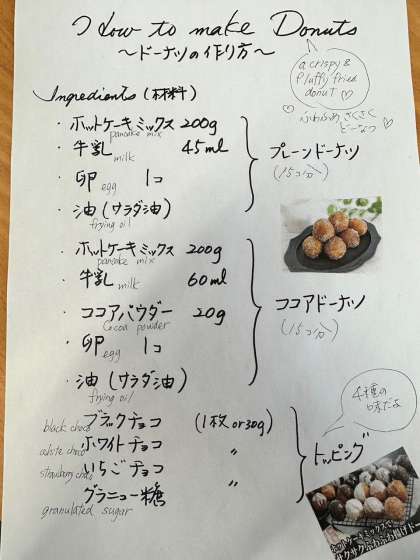 How to make Donuts
～ドーナツの作り方～
a crispy &
fluffy fried
donut ♡
♡ ふわふわ さくさく
どーなつ ♡
Ingredients (材料)
・ホットケーキミックス 200g
pancake mix
・牛乳 45ml
milk
・卵 1コ
egg
・油 (サラダ油)
frying oil
プレーンドーナツ
(15コ分)
・ホットケーキミックス 200g
pancake mix
・牛乳 60ml
milk
・ココアパウダー 20g
Cocoa powder
・卵 1コ
egg
・油 (サラダ油)
frying oil
ココアドーナツ
(15コ分)
black choco ブラックチョコ (1枚 or 30g)
white choco ホワイトチョコ 〃
strawberry choco いちごチョコ 〃
グラニュー糖
granulated sugar
トッピング
4種の
味だよ
ホットケーキミックスで
サクサクふわふわ揚げドー